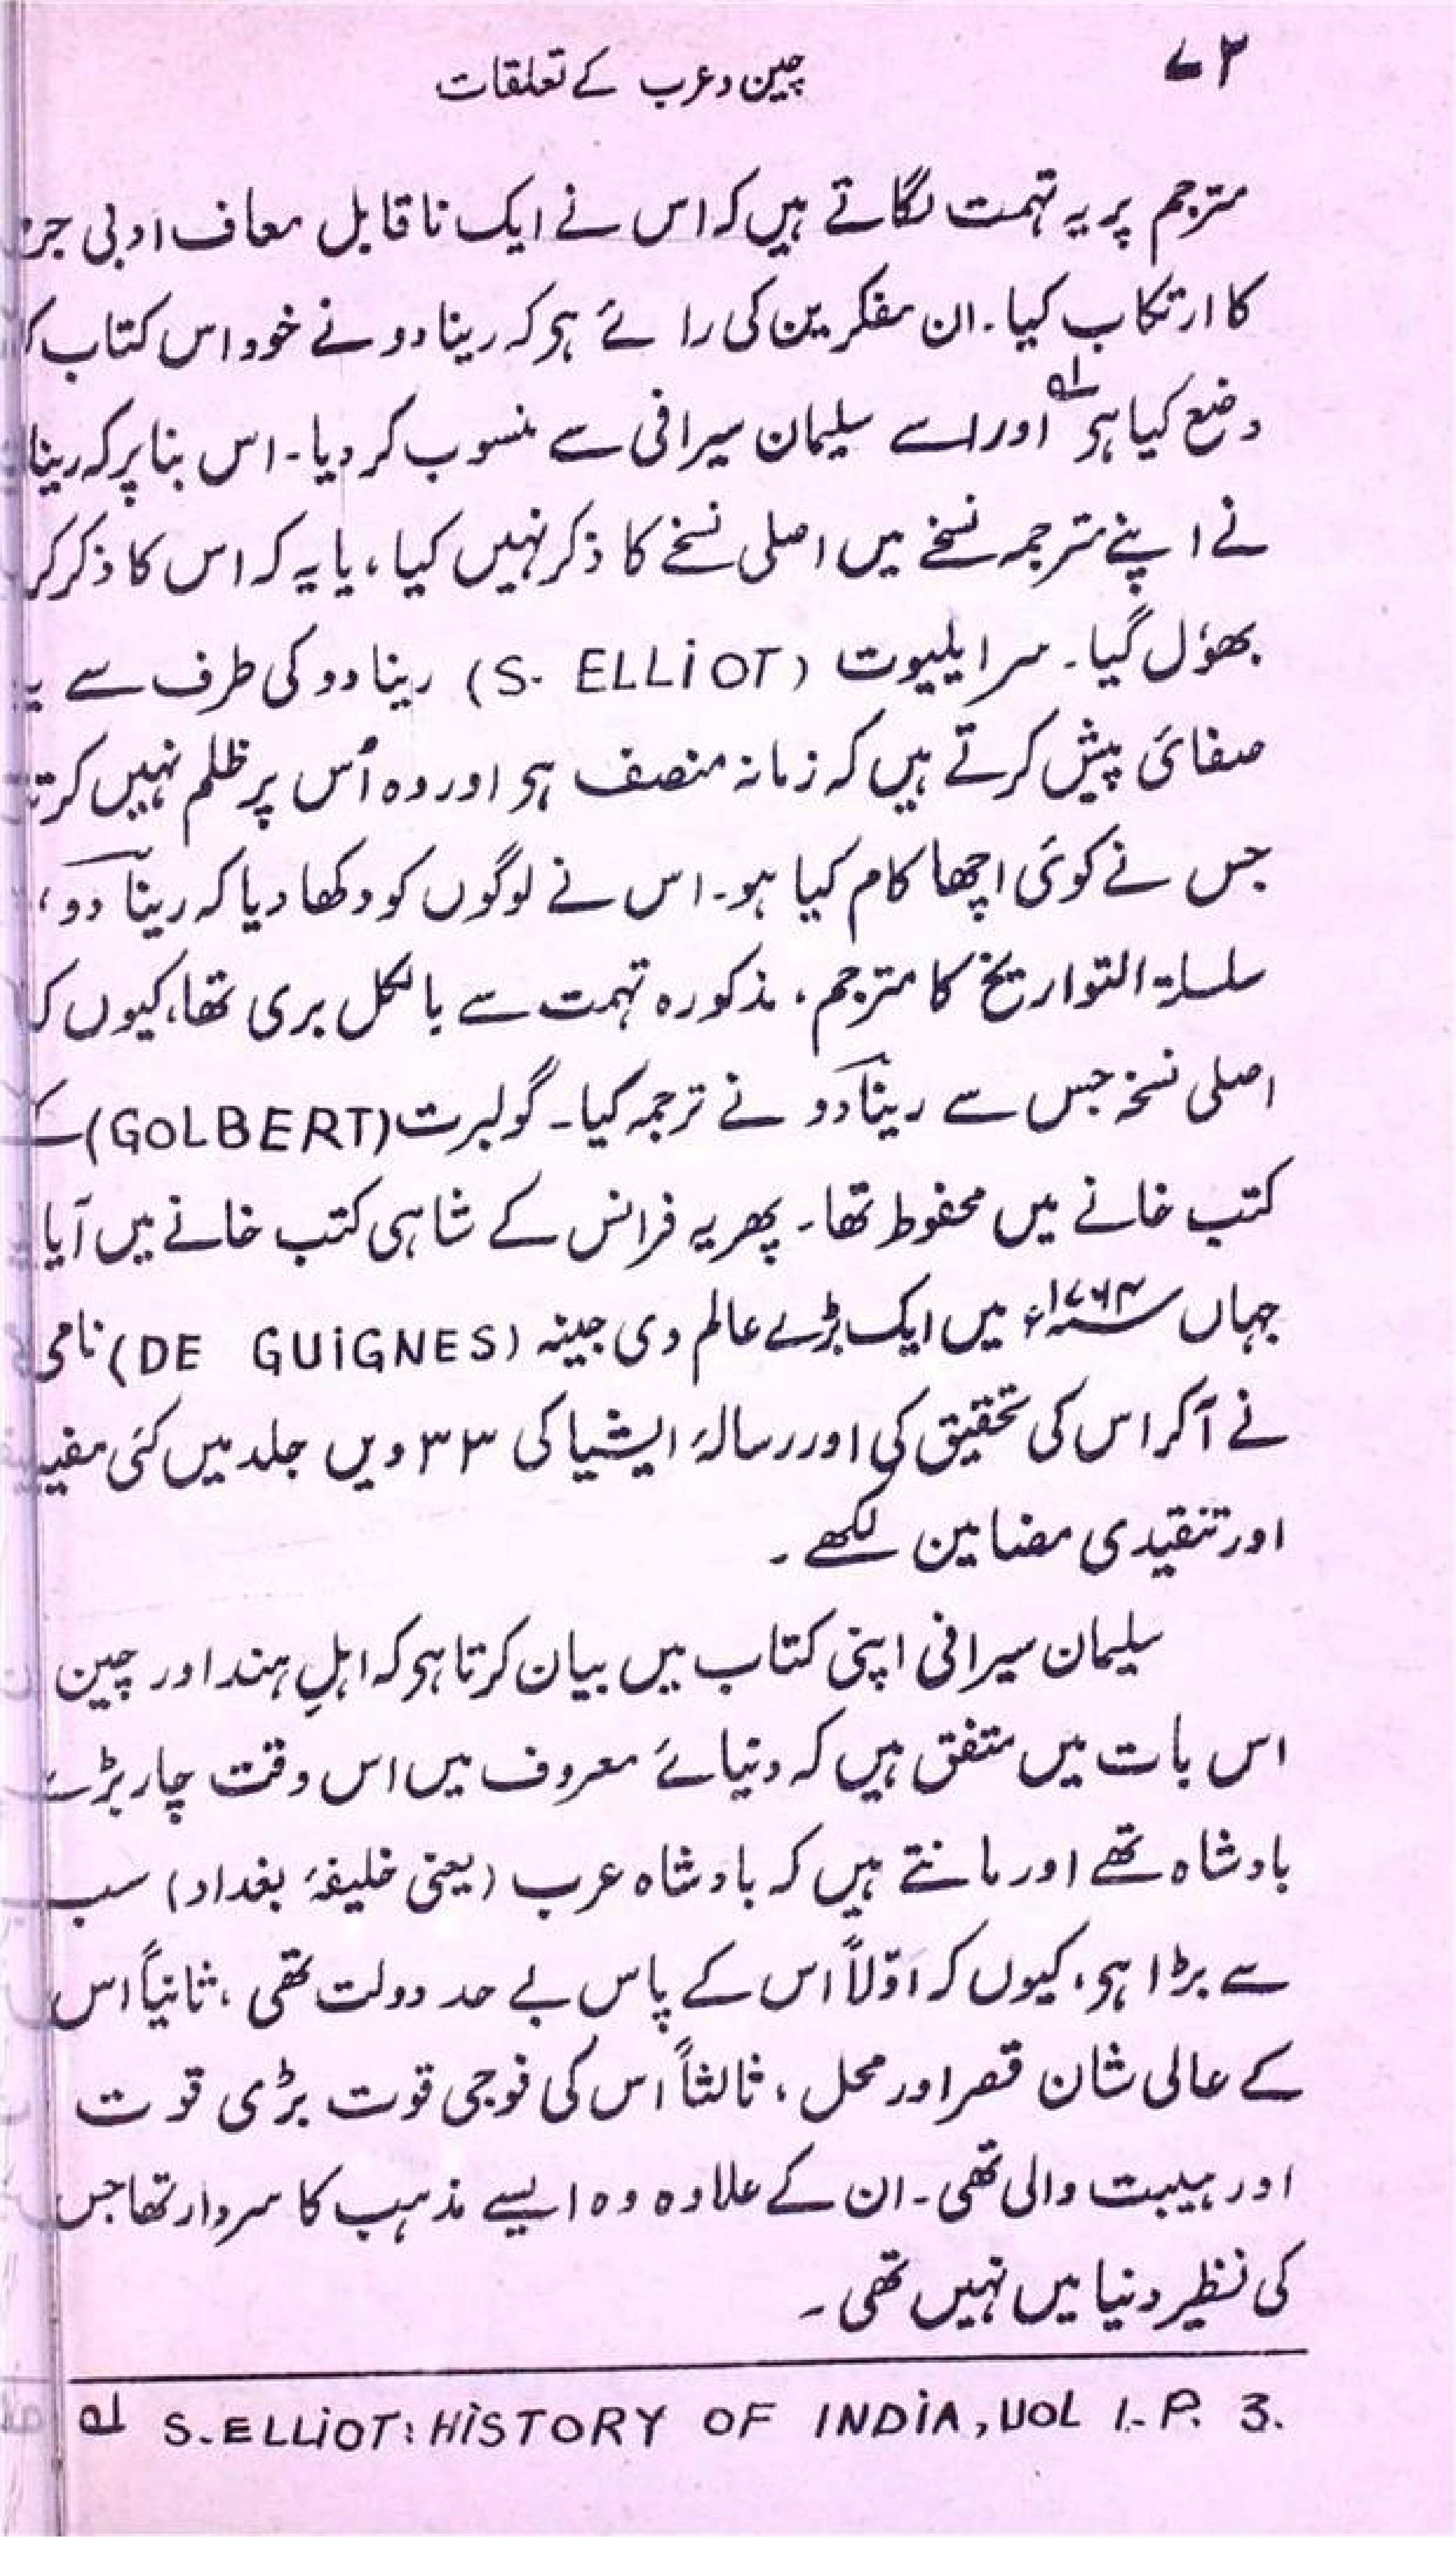 ۷۲
چین و عرب کے تعلقات
مترجم پر یہ تہمت لگاتے ہیں کہ اس نے ایک نا قابل معاف ادبی
کا ارتکاب کیا۔ ان مفکرین کی رائے ہو کہ رینادو نے خود اس کتاب
وضع کیا ہو لہ اور اسے سلیمان سیرافی سے منسوب کر دیا۔ اس بنا پر کہ رینا
نے اپنے ترجمہ نسخے میں اصلی نسخے کا ذکر نہیں کیا، یا یہ کہ اس کا ذکر کر
بھؤل گیا۔ سر ایلیوت (S. ELLiOT) رینادو کی طرف سے یہ
صفائی پیش کرتے ہیں کہ زمانہ منصف ہو اور وہ اُس پر ظلم نہیں کرتا
جس نے کوئی اچھا کام کیا ہو۔ اس نے لوگوں کو دکھا دیا کہ رینا دو،
سلسلۃ التواریخ کا مترجم، مذکورہ تہمت سے بالکل بری تھا، کیوں کہ
اصلی نسخہ جس سے رینادو نے ترجمہ کیا۔ گولبرت (GOLBERT)
کتب خانے میں محفوظ تھا۔ پھر یہ فرانس کے شاہی کتب خانے میں آیا
جہاں ۱۷۶۴ء میں ایک بڑے عالم دی جینہ (DE GUiGNES) نامی
نے آکر اس کی تحقیق کی اور رسالۂ ایشیا کی ۳۳ ویں جلد میں کئی مفید
اور تنقیدی مضامین لکھے۔
سلیمان سیرافی اپنی کتاب میں بیان کرتا ہو کہ اہلِ ہند اور چین
اس بات میں متفق ہیں کہ دنیائے معروف میں اس وقت چار بڑے
بادشاہ تھے اور مانتے ہیں کہ بادشاہ عرب (یعنی خلیفۂ بغداد) سب
سے بڑا ہو، کیوں کہ اوّلاً اس کے پاس بے حد دولت تھی، ثانیاً اس
کے عالی شان قصر اور محل، ثالثاً اس کی فوجی قوت بڑی قوت
اور ہیبت والی تھی۔ ان کے علاوہ وہ ایسے مذہب کا سردار تھا جس
کی نظیر دنیا میں نہیں تھی۔
لہ S.ELLiOT: HiSTORY OF INDiA, VOL 1.-P. 3.